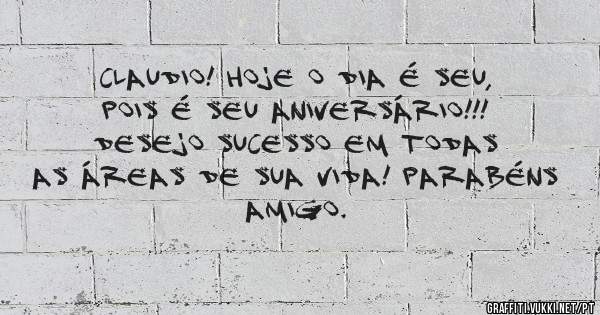 CLAUDIO! HOJE O DIA É SEU,
POIS É SEU ANIVERSÁRIO!!!
DESEJO SUCESSO EM TODAS
AS ÁREAS DE SUA VIDA! PARABÉNS
AMIGO.
GRAFFITI.VUKKI.NET/PT